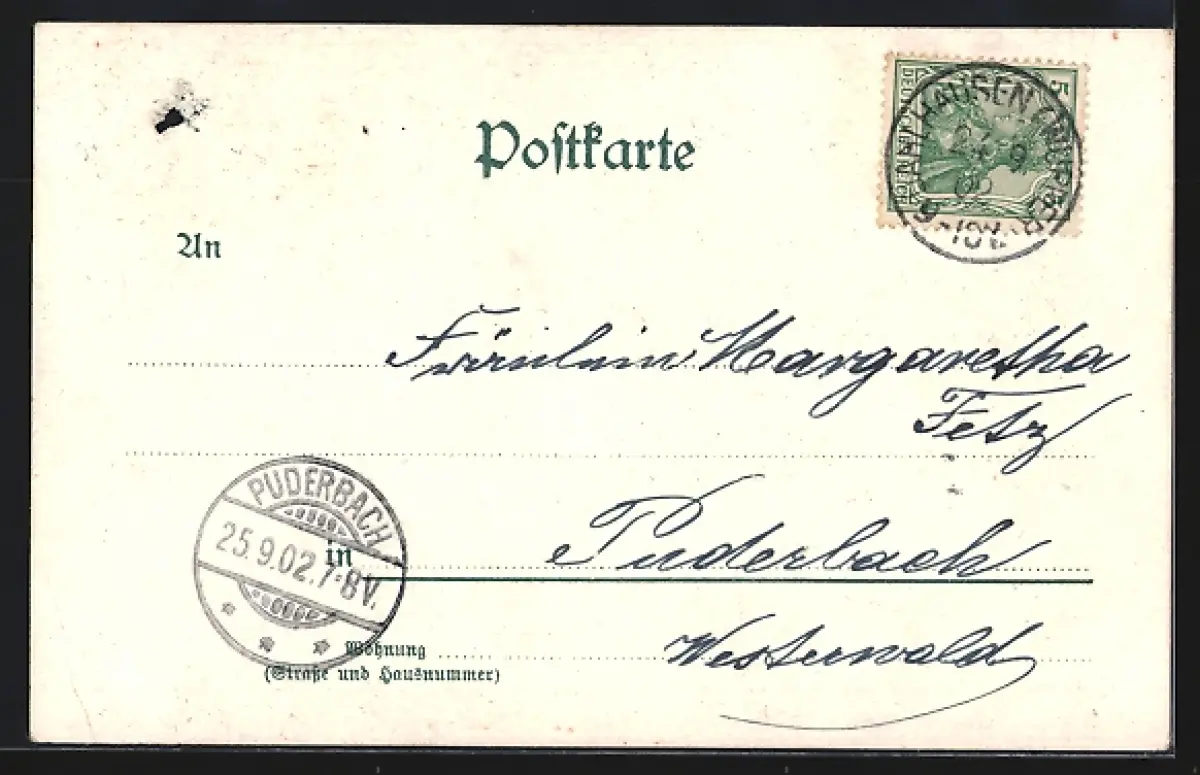 Postkarte
5
DEUTSCHES REICH
DAHLHAUSEN (WUPPER)
24 9
02
9-10V.
An
Fräulein Margaretha
Fetz
PUDERBACH
25.9.02.7-8V.
in Puderbach
Wohnung Westerwald
(Straße und Hausnummer)